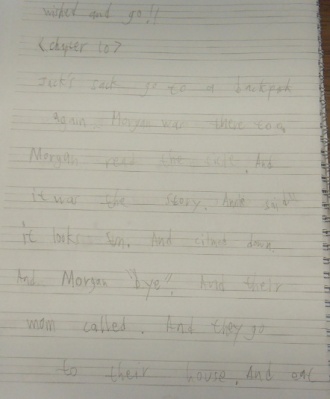 wished and go!!
<chapter 10>
Jack's sack go to a backpack
again Morgan was there too.
Morgan read the . And
it was the story. And still
it looks sun. And climb down
And Morgan "bye". And their
mom called. And they go
to their house. And eat